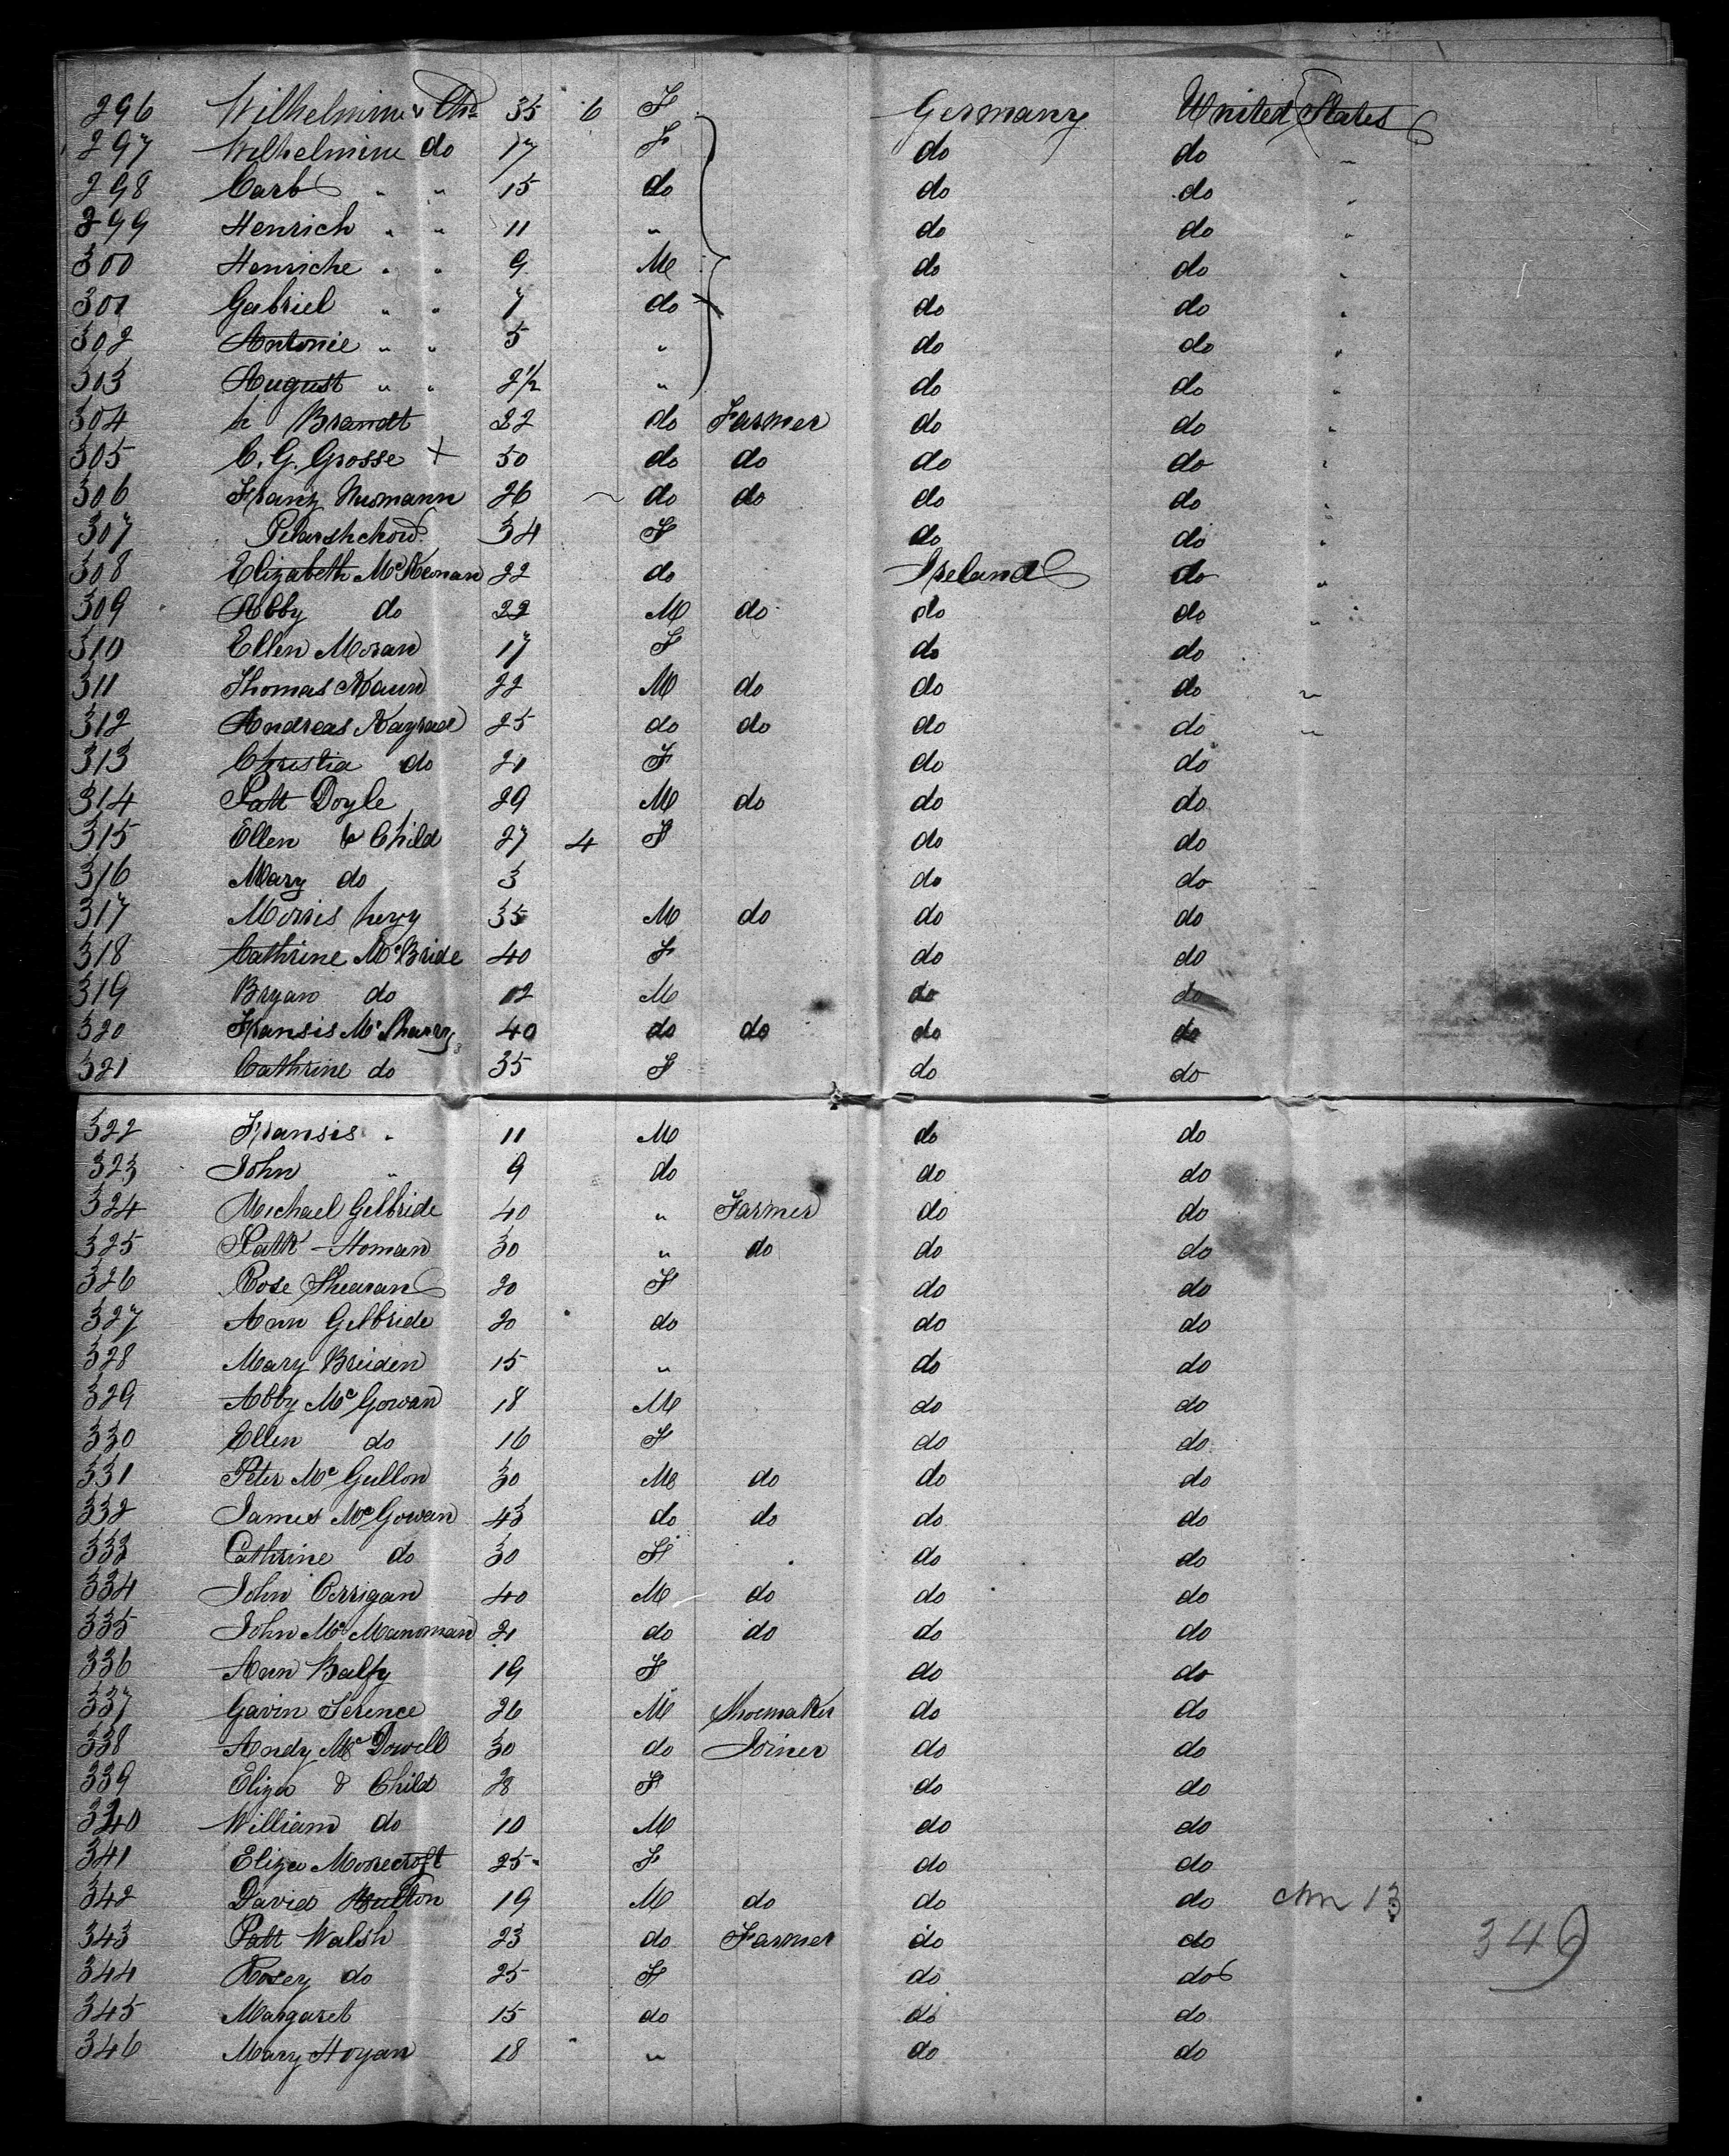 296 Wilhelmine & Chd 35 6 F Germany United States
297 Wilhelmine do 17 F do do "
298 Carb " " 15 do do do "
299 Henrich " " 11 " do do "
300 Henriche " " 9 M do do "
301 Gabriel " " 7 do do do "
302 Antonie " " 5 " do do "
303 August " " 2½ " do do "
304 h Brandt 22 do Farmer do do "
305 C. G. Grosse + 50 do do do do "
306 Franz Numann 26 do do do do "
307 34 F do do "
308 Elizabeth McKeonan 22 do Ireland do "
309 Abby do 22 M do do do "
310 Ellen Moran 17 F do do
311 Thomas Kaun 22 M do do do "
312 Andreas Kayrad 25 do do do do "
313 Christia do 21 F do do
314 Patt Doyle 29 M do do do
315 Ellen & Child 27 4 F do do
316 Mary do 3 do do
317 Morris 35 M do do do
318 Cathrine McBride 40 F do do
319 Bryan do 12 M do do
320 Fransis McSharry 40 do do do do
321 Cathrine do 35 F do do
322 Fransis " 11 M do do
323 John " 9 do do do
324 Michael Gelbride 40 " Farmer do do
325 Patk Homan 30 " do do do
326 Rose Shearan 20 F do do
327 Ann Gelbride 20 do do do
328 Mary Breiden 15 " do do
329 Abby McGowan 18 M do do
330 Ellen do 16 F do do
331 Peter McGullon 30 M do do do
332 James McGowan 43 do do do do
333 Cathrine do 30 F do do
334 John Corrigan 40 M do do do
335 John McManoman 21 do do do do
336 Ann Balfy 19 F do do
337 Gavin Terence 26 M Shoemaker do do
338 Andy McDowell 30 do Joiner do do
339 Eliza & Child 28 F do do
340 William do 10 M do do
341 Eliza Morecroft 25 F do do
342 David Hutton 19 M do do do 13
343 Patt Walsh 23 do Farmer do do
346
344 Rosey do 25 F do do
345 Margaret 15 do do do
346 Mary Hoyan 18 " do do